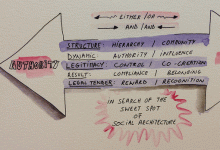 EITHER / OR
AND / AND
STRUCTURE: HIERARCHY / COMMUNITY
DYNAMIC AUTHORITY / INFLUENCE
LEGITIMACY CONTROL / CO-CREATION
RESULT: COMPLIANCE /
LEGAL TENDER REWARD / RECOGNITION
AUTHORITY
IN SEARCH OF THE
SWEET SPOT
OF
SOCIAL ARCHITECTURE